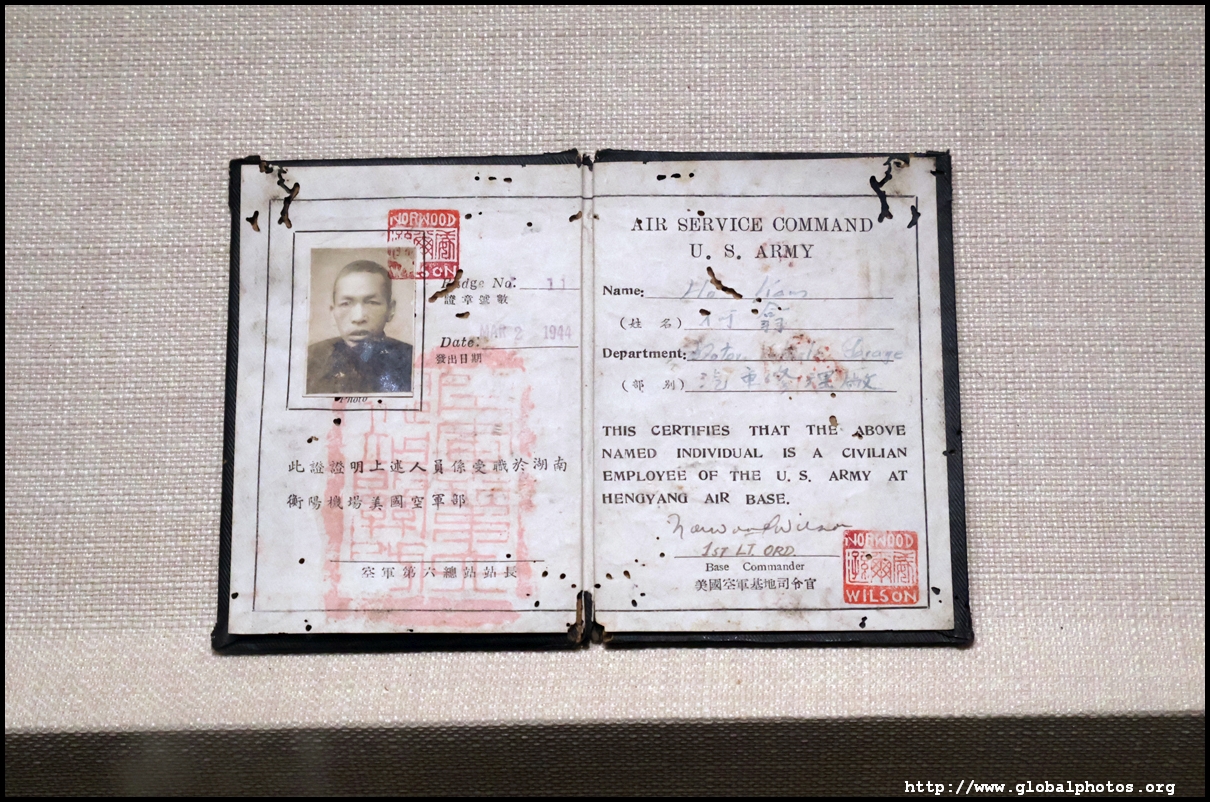 NORWOOD
WILSON
Badge No: 11
證章號數
Date: MAR 2 1944
發出日期
Photo
此證證明上述人員係受職於湖南
衡陽機場美國空軍部
空軍第六總站站長
AIR SERVICE COMMAND
U. S. ARMY
Name:
(姓 名)
Department: Garage
(部 別) 汽車修理廠
THIS CERTIFIES THAT THE ABOVE
NAMED INDIVIDUAL IS A CIVILIAN
EMPLOYEE OF THE U. S. ARMY AT
HENGYANG AIR BASE.
Norwood Wilson
1ST LT. ORD.
Base Commander
美國空軍基地司令官
NORWOOD
WILSON
http://www.globalphotos.org